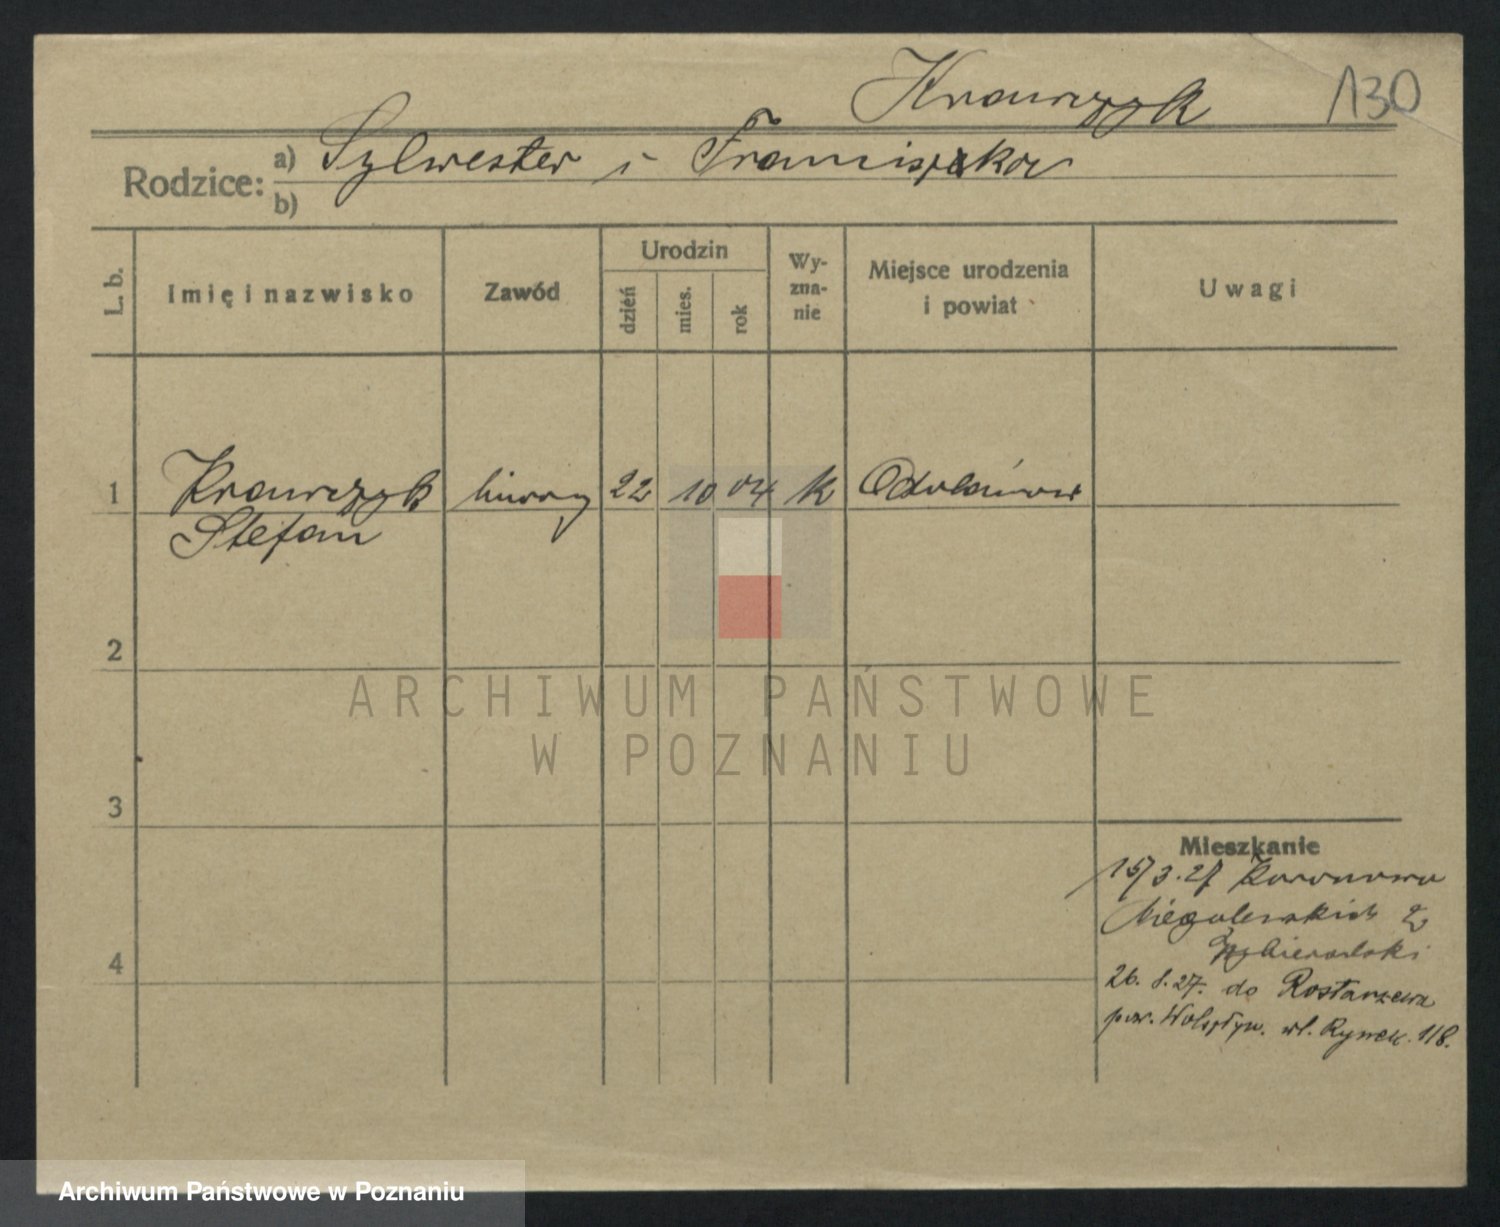 Krawczyk 130
Rodzice: a) Sylwester i Franciszka
b)
L. b. Imię i nazwisko Zawód Urodzin dzień mies. rok Wyznanie Miejsce urodzenia i powiat Uwagi
1 Krawczyk 22 10 04 k Odolanów
Stefan
2
ARCHIWUM PAŃSTWOWE
W POZNANIU
3
Mieszkanie
15/3.27 Koronowo
Niegolewskich
4
26. 8. 27. do Rostarzewa
pow. Wolsztyn. ul. Rynek. 118.
Archiwum Państwowe w Poznaniu